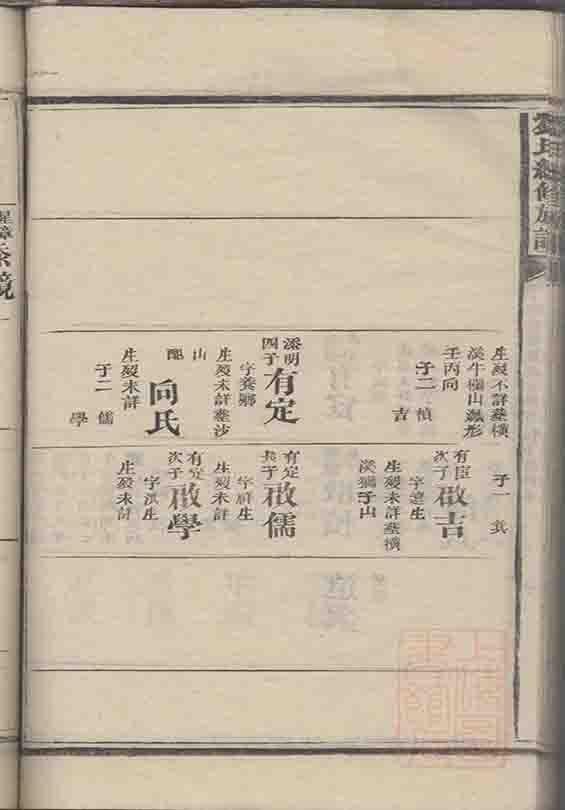 氏續修族譜
生歿不詳葬橫
溪牛欄山瓢形
壬丙向
子二 楨
吉
添明
四子
有定
字養鄉
生歿未詳葬沙
山
配
向氏
生歿未詳
子二 儒
學
子一 兵
有臣
次子
啟吉
字達生
生歿未詳葬橫
溪獅子山
有定
長子
啟儒
生歿未詳
有定
次子
啟學
生歿未詳